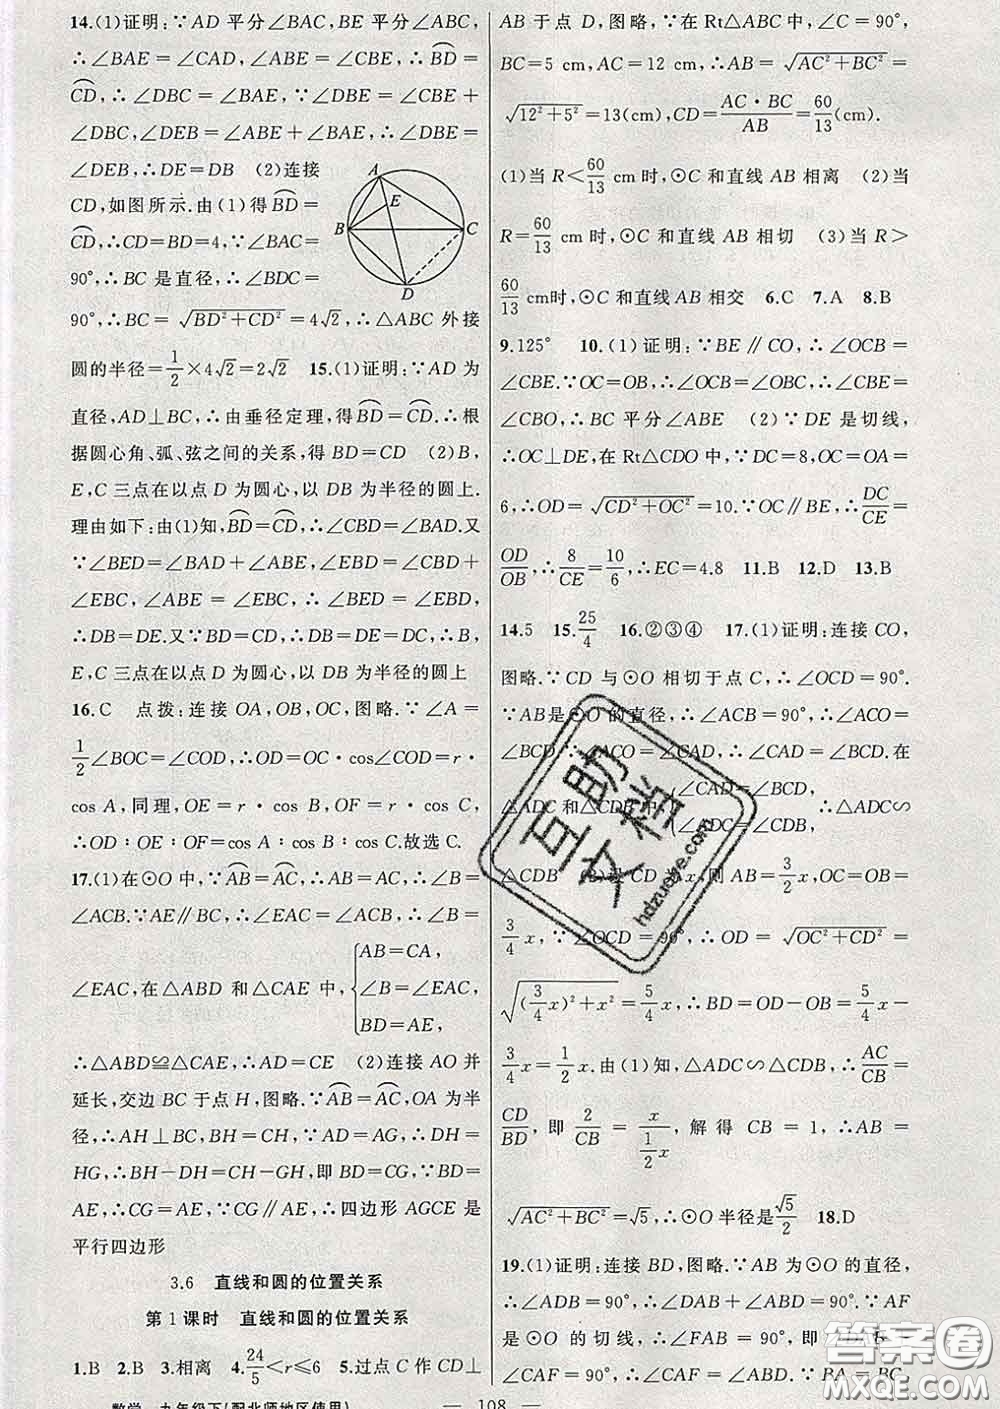 14.(1)证明:∵AD平分∠BAC,BE平分∠ABC,
∴∠BAE=∠CAD,∠ABE=∠CBE,∴⌒BD=
⌒CD,∴∠DBC=∠BAE,∵∠DBE=∠CBE+
∠DBC,∠DEB=∠ABE+∠BAE,∴∠DBE=
∠DEB,∴DE=DB (2)连接
CD,如图所示.由(1)得⌒BD=
⌒CD,∴CD=BD=4,∵∠BAC=
90°,∴BC是直径,∴∠BDC=
90°,∴BC=√(BD²+CD²)=4√2,∴△ABC外接
圆的半径=1/2×4√2=2√2 15.(1)证明:∵AD为
直径,AD⊥BC,∴由垂径定理,得⌒BD=⌒CD.∴根
据圆心角、弧、弦之间的关系,得BD=CD (2)B,
E,C三点在以点D为圆心,以DB为半径的圆上.
理由如下:由(1)知,⌒BD=⌒CD,∴∠CBD=∠BAD.又
∵∠BED=∠BAD+∠ABE,∠EBD=∠CBD+
∠EBC,∠ABE=∠EBC,∴∠BED=∠EBD,
∴DB=DE.又∵BD=CD,∴DB=DE=DC,∴B,
E,C三点在以点D为圆心,以DB为半径的圆上
16.C 点拨:连接OA,OB,OC,图略.∵∠A=
1/2∠BOC=∠COD,∴OD=OC·cos∠COD=r·
cos A,同理,OE=r·cos B,OF=r·cos C,
∴OD:OE:OF=cos A:cos B:cos C.故选C.
17.(1)在⊙O中,∵⌒AB=⌒AC,∴AB=AC,∴∠B=
∠ACB.∵AE∥BC,∴∠EAC=∠ACB,∴∠B=
∠EAC,在△ABD和△CAE中,{AB=CA,
∠B=∠EAC,
BD=AE,
∴△ABD≌△CAE,∴AD=CE (2)连接AO并
延长,交边BC于点H,图略.∵⌒AB=⌒AC,OA为半
径,∴AH⊥BC,BH=CH,∵AD=AG,∴DH=
HG,∴BH-DH=CH-HG,即BD=CG,∵BD=
AE,∴CG=AE,∵CG∥AE,∴四边形AGCE是
平行四边形
A
E
B
C
D
3.6 直线和圆的位置关系
第1课时 直线和圆的位置关系
1.B 2.B 3.相离 4.24/5<r≤6 5.过点C作CD⊥
AB于点D,图略,∵在Rt△ABC中,∠C=90°,
BC=5 cm,AC=12 cm,∴AB=√(AC²+BC²)=
√(12²+5²)=13(cm),CD=AC·BC/AB=60/13(cm).
(1)当R<60/13 cm时,⊙C和直线AB相离 (2)当
R=60/13 cm时,⊙C和直线AB相切 (3)当R>
60/13 cm时,⊙C和直线AB相交 6.C 7.A 8.B
9.125° 10.(1)证明:∵BE∥CO,∴∠OCB=
∠CBE.∵OC=OB,∴∠OCB=∠OBC,∴∠CBE=
∠CBO,∴BC平分∠ABE (2)∵DE是切线,
∴OC⊥DE,在Rt△CDO中,∵DC=8,OC=OA=
6,∴OD=√(CD²+OC²)=10.∵OC∥BE,∴DC/CE=
OD/OB,∴8/CE=10/6,∴EC=4.8 11.B 12.D 13.B
14.5 15.25/4 16.②③④ 17.(1)证明:连接CO,
图略.∵CD与⊙O相切于点C,∴∠OCD=90°.
∵AB是⊙O的直径,∴∠ACB=90°,∴∠ACO=
∠BCD,∵∠ACO=∠CAD,∴∠CAD=∠BCD.在
△ADC和△CDB中,{∠CAD=∠BCD,
∠ADC=∠CDB, ∴△ADC∽
△CDB (2)设CD为x,则AB=3/2x,OC=OB=
3/4x,∵∠OCD=90°,∴OD=√(OC²+CD²)=
√((3/4x)²+x²)=5/4x,∴BD=OD-OB=5/4x-
3/4x=1/2x.由(1)知,△ADC∽△CDB,∴AC/CB=
CD/BD,即2/CB=x/(1/2x),解得CB=1,∴AB=
√(AC²+BC²)=√5,∴⊙O半径是√5/2 18.D
19.(1)证明:连接BD,图略.∵AB为⊙O的直径,
∴∠ADB=90°,∴∠DAB+∠ABD=90°.∵AF
是⊙O的切线,∴∠FAB=90°,即∠DAB+
∠CAF=90°,∴∠CAF=∠ABD.∵BA=BC,
数学 九年级下(配北师地区使用)
— 108 —
互助文档
hdzuoye.com
答案圈
MXQE.COM